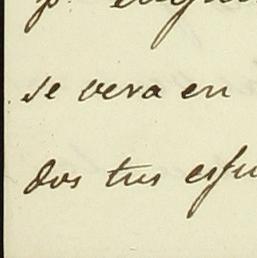 se vera en
dos tus esfu